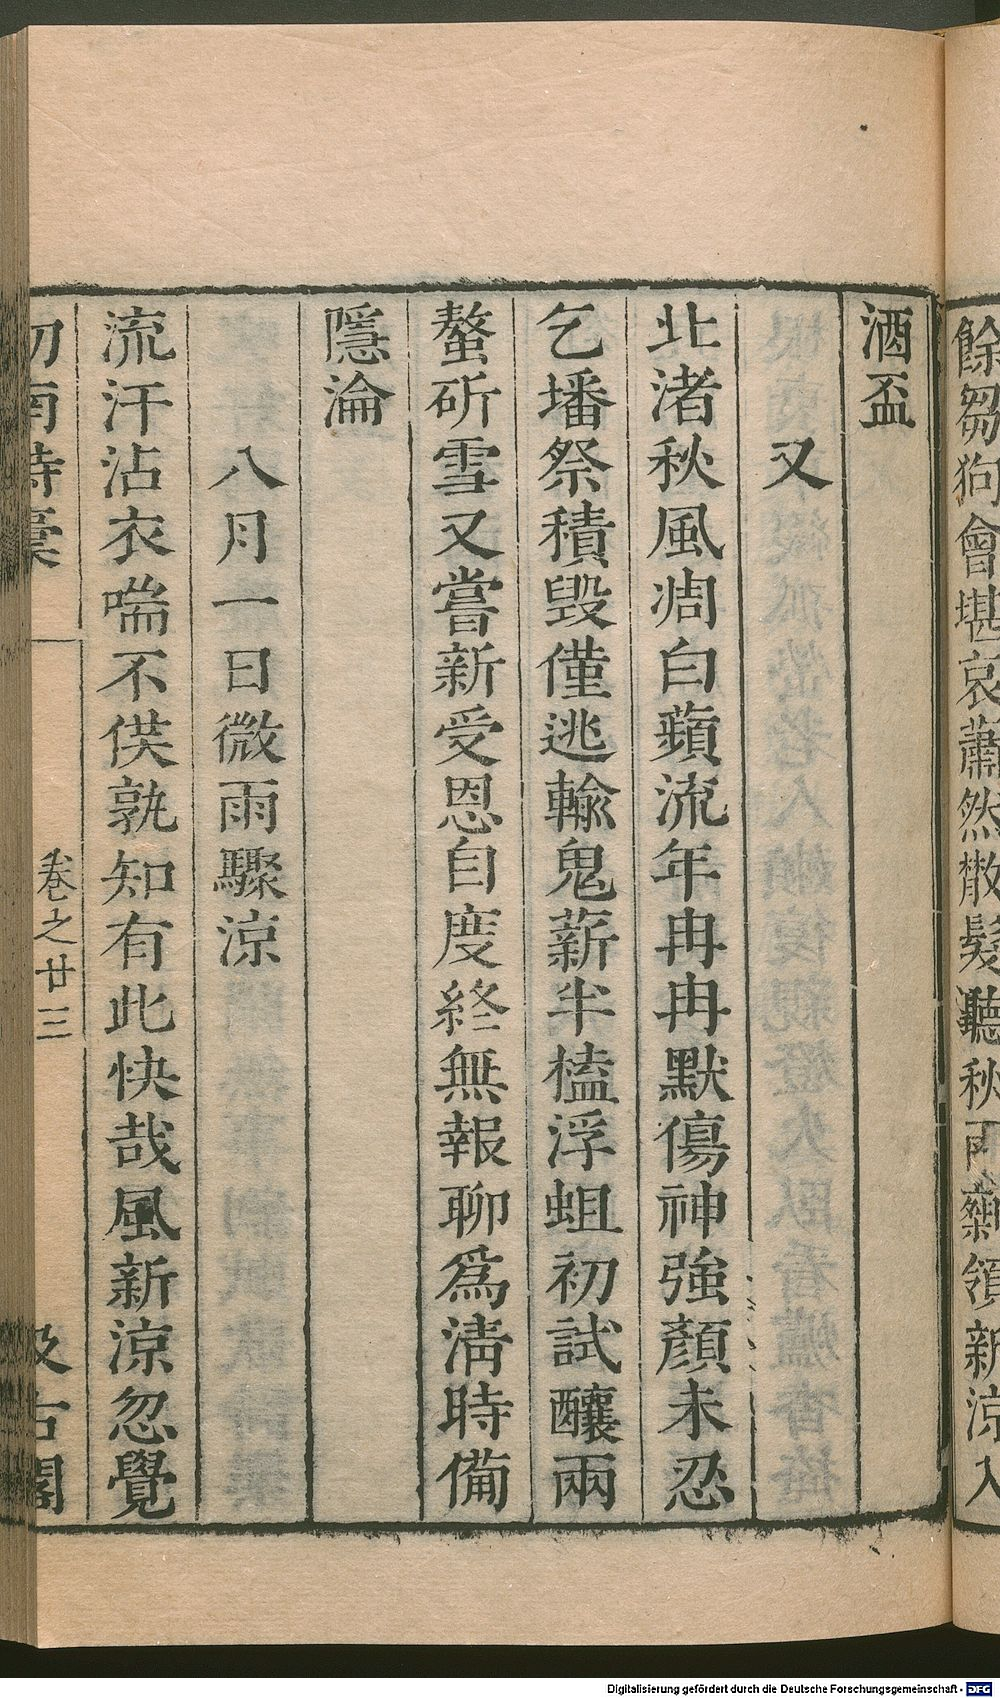 餘芻狗會堪哀蕭然散髮聽秋雨剩領新涼入
酒盃
又
北渚秋風凋白蘋流年冉冉默傷神強顏未忍
乞墦祭積毀僅逃輸鬼薪半榼浮蛆初試釀兩
螯斫雪又嘗新受恩自度終無報聊爲淸時備
隱淪
八月一日微雨驟涼
流汗沾衣喘不供孰知有此快哉風新涼忽覺
卷之廿三
Digitalisierung gefördert durch die Deutsche Forschungsgemeinschaft - DFG